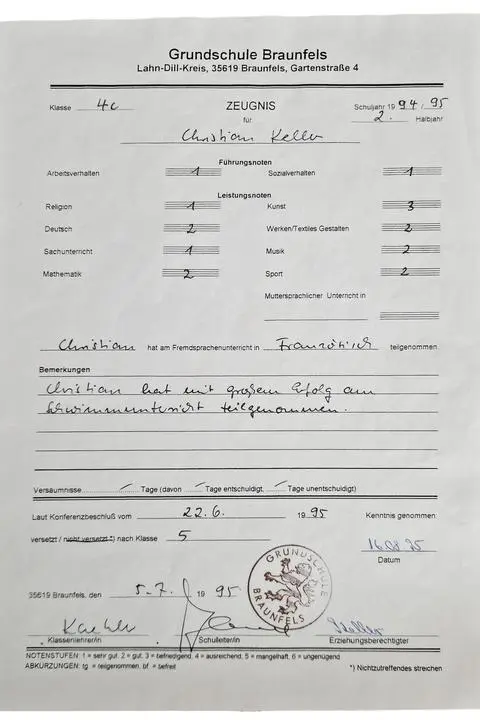 Grundschule Braunfels
Lahn-Dill-Kreis, 35619 Braunfels, Gartenstraße 4
Klasse 4c ZEUGNIS Schuljahr 1994/95
für 2. Halbjahr
Christian Keller
Führungsnoten
Arbeitsverhalten 1 Sozialverhalten 1
Leistungsnoten
Religion 1 Kunst 3
Deutsch 2 Werken/Textiles Gestalten 2
Sachunterricht 1 Musik 2
Mathematik 2 Sport 2
Muttersprachlicher Unterricht in
Christian hat am Fremdsprachenunterricht in Französisch teilgenommen.
Bemerkungen
Christian hat mit großem Erfolg am
Schwimmunterricht teilgenommen.
Versäumnisse Tage (davon Tage entschuldigt, Tage unentschuldigt)
Laut Konferenzbeschluß vom 22.6. 1995 Kenntnis genommen:
versetzt / nicht versetzt *) nach Klasse 5
16.08.95
Datum
35619 Braunfels, den 5.7. 1995
GRUNDSCHULE BRAUNFELS
Keller
Klassenlehrer/in Schulleiter/in Erziehungsberechtigter
NOTENSTUFEN: 1 = sehr gut, 2 = gut, 3 = befriedigend, 4 = ausreichend, 5 = mangelhaft, 6 = ungenügend
ABKÜRZUNGEN: tg = teilgenommen, bf = befreit *) Nichtzutreffendes streichen